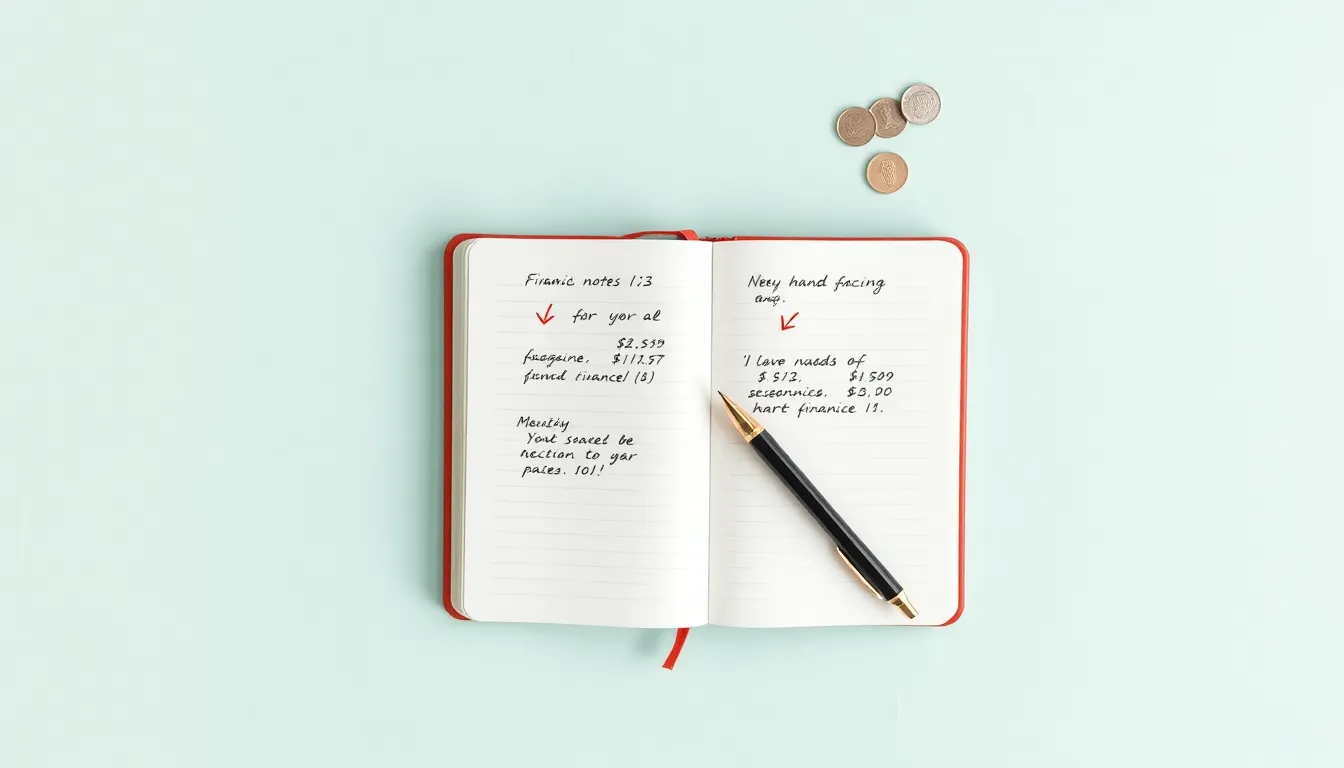 Firanic notes 1;3
for yor al
$2.559
fxagaine. $117.57
fornd financel (8)
Meatily
Yont soaed be
nection to yar
pales. 101!
Nery hand facing
I Lave naads of
$.513. $1.509
$3.00
hart finanice 11.